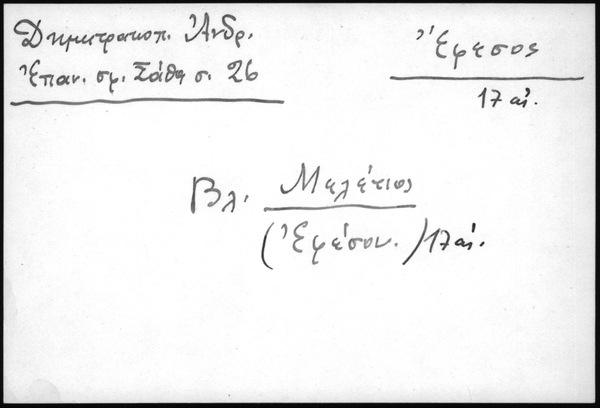 Δημητρακοπ. Ἀνδρ.
Ἐπαν. σφ. Σάθα σ. 26
Ἔφεσος
17 αἰ.
Βλ. Μελέτιος
(Ἐφέσου.) 17 αἰ.